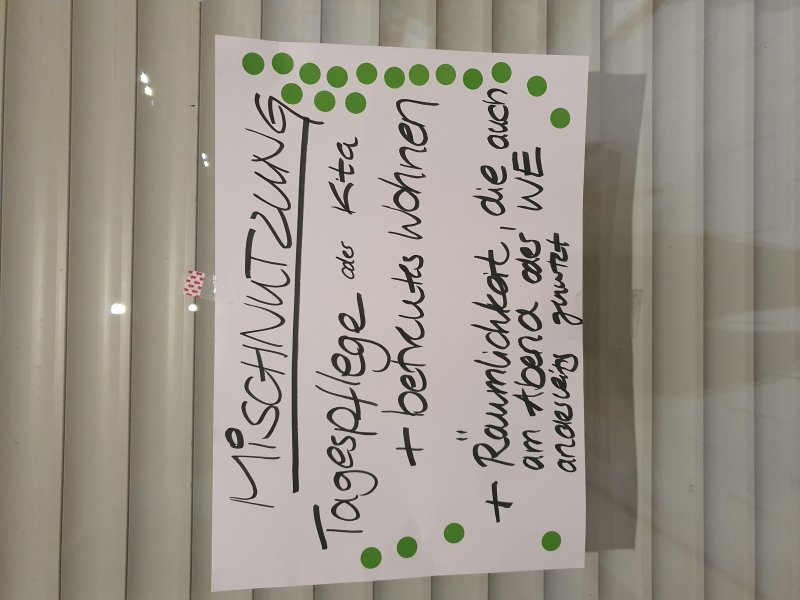 MiSCHNUTZUNG
Tagespflege oder Kita
+ betreutes Wohnen
+ Räumlichkeit, die auch
am Abend oder WE
anderweitig genutzt